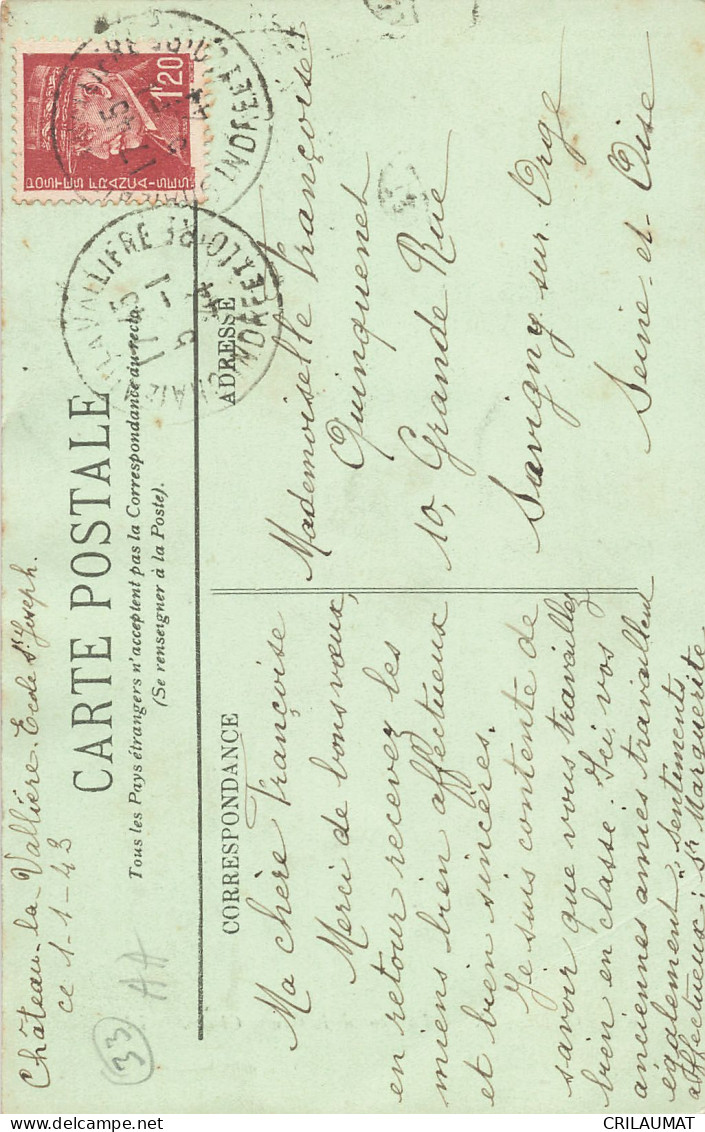 Château-la-Vallière. Ecole St. Joseph.
ce 1-1-43
33
AA
CARTE POSTALE
Tous les Pays étrangers n'acceptent pas la Correspondance au recto.
(Se renseigner à la Poste).
CORRESPONDANCE
Ma chère Françoise
Merci de bons vœux,
en retour recevez les
miens bien affectueux
et bien sincères.
Je suis contente de
savoir que vous travaillez
bien en classe. Ici, vos
anciennes amies travaillent
également. Sentiments
affectueux: Sr Marguerite
ADRESSE
Mademoiselle Françoise
Quinquenet
10, Grande Rue
Savigny sur Orge
Seine-et-Oise
1F20
POSTES FRANÇAISES
LA VALLIERE
17 45
5 -1
INDRE ET LOIRE
CRILAUMAT